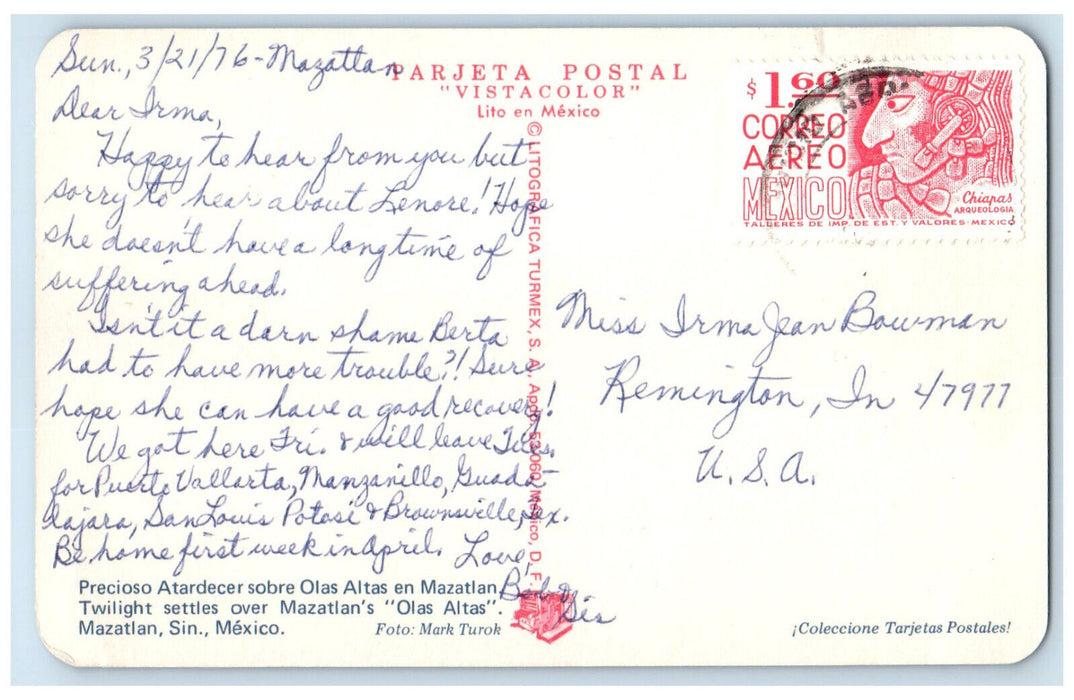 Sun., 3/21/76 - Mazatlan
TARJETA POSTAL
"VISTACOLOR"
Lito en México
Dear Irma,
Happy to hear from you but
sorry to hear about Lenore! Hope
she doesn't have a long time of
suffering ahead.
Isn't it a darn shame Berta
had to have more trouble?! Sure
hope she can have a good recovery!
We got here Fri. & will leave Tues.
for Puerto Vallarta, Manzanillo, Guada-
lajara, San Louis Potosi & Brownsville, Tex.
Be home first week in April. Love,
Bob &
Sis
© LITOGRAFICA TURMEX, S. A. Apdo. 53-060, México, D. F.
Precioso Atardecer sobre Olas Altas en Mazatlan.
Twilight settles over Mazatlan's "Olas Altas".
Mazatlan, Sin., México.
Foto: Mark Turok
$1.60
CORREO
AEREO
MEXICO
Chiapas
ARQUEOLOGIA
TALLERES DE IMP. DE EST. Y VALORES-MEXICO
Miss Irma Jean Bowman
Remington, In 47977
U.S.A.
¡Coleccione Tarjetas Postales!